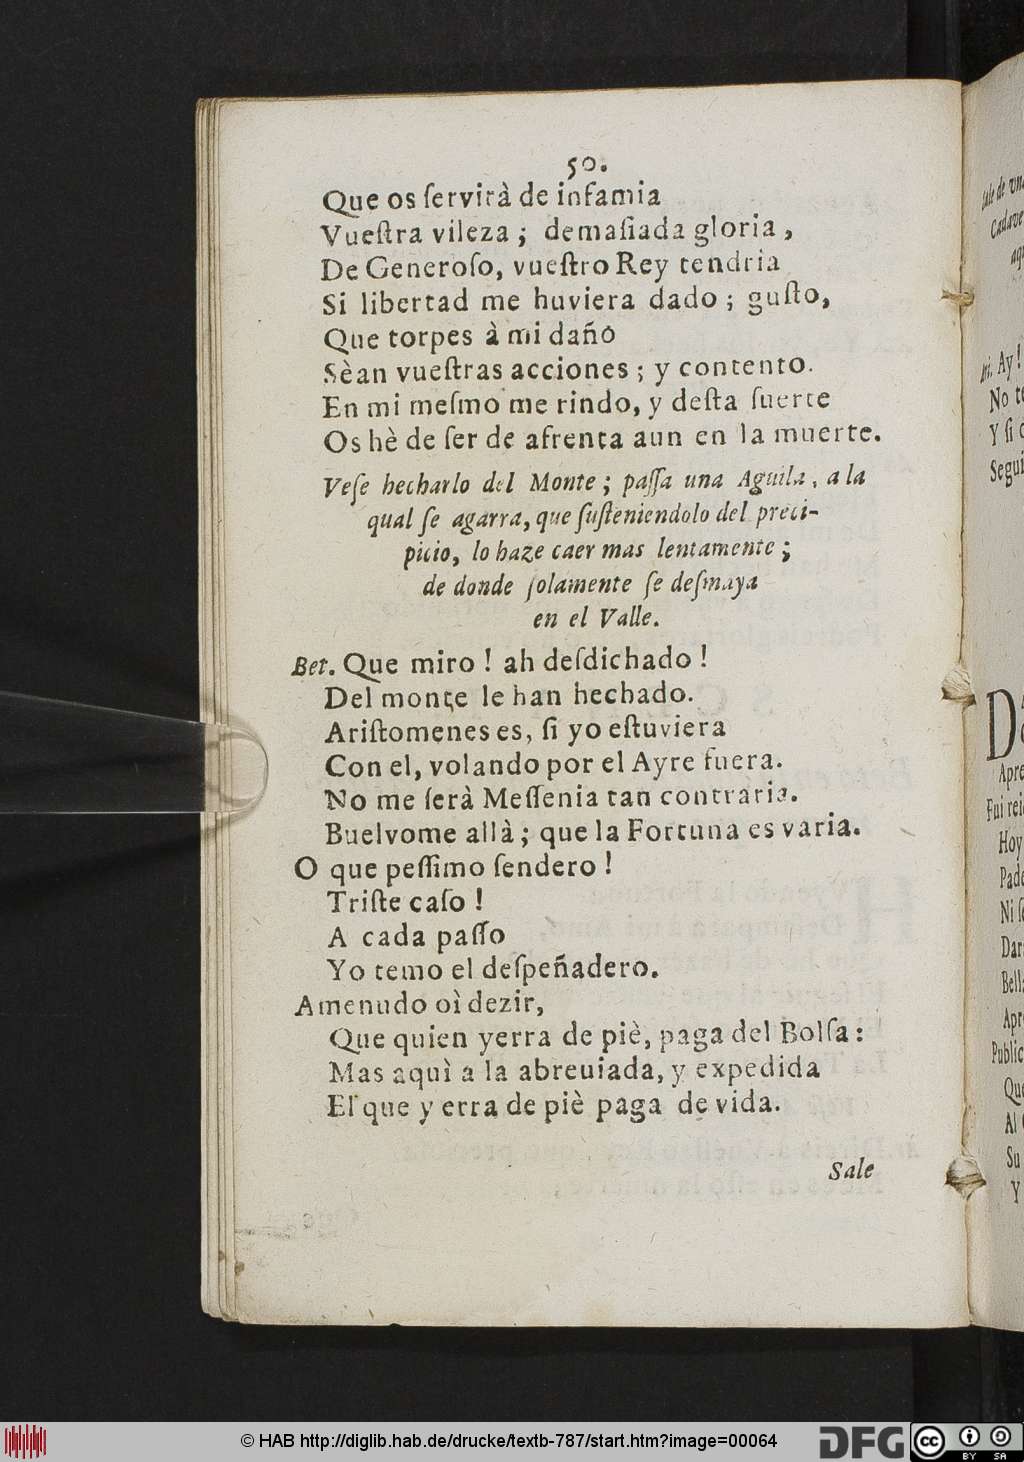 50.
Que os ſervirà de infamia
Vueſtra vileza ; demaſiada gloria ,
De Generoſo, vueſtro Rey tendria
Si libertad me huviera dado ; guſto,
Que torpes à mi daño
Sèan vueſtras acciones ; y contento.
En mi meſmo me rindo, y deſta ſuerte
Os hè de ſer de afrenta aun en la muerte.
Veſe hecharlo del Monte ; paſſa una Aguila , a la
qual ſe agarra, que ſuſteniendolo del preci-
picio, lo haze caer mas lentamente ;
de donde ſolamente ſe deſmaya
en el Valle.
Bet. Que miro ! ah deſdichado !
Del monte le han hechado.
Ariſtomenes es, ſi yo eſtuviera
Con el, volando por el Ayre fuera.
No me ſerà Meſſenia tan contraria.
Buelvome allà ; que la Fortuna es varia.
O que peſſimo ſendero !
Triſte caſo !
A cada paſſo
Yo temo el deſpeñadero.
Amenudo oì dezir,
Que quien yerra de piè, paga del Bolſa :
Mas aquì a la abreuiada, y expedida
El que y erra de piè paga de vida.
Sale
ſale de vna
Cadave
aqu
Ari. Ay !
No te
Y ſi
Segui
Apre
Fui
Hoy
Pade
Ni ſe
Dar
Bella
Apr
Public
Que
Al
Su
Y
© HAB http://diglib.hab.de/drucke/textb-787/start.htm?image=00064
DFG
cc
BY SA